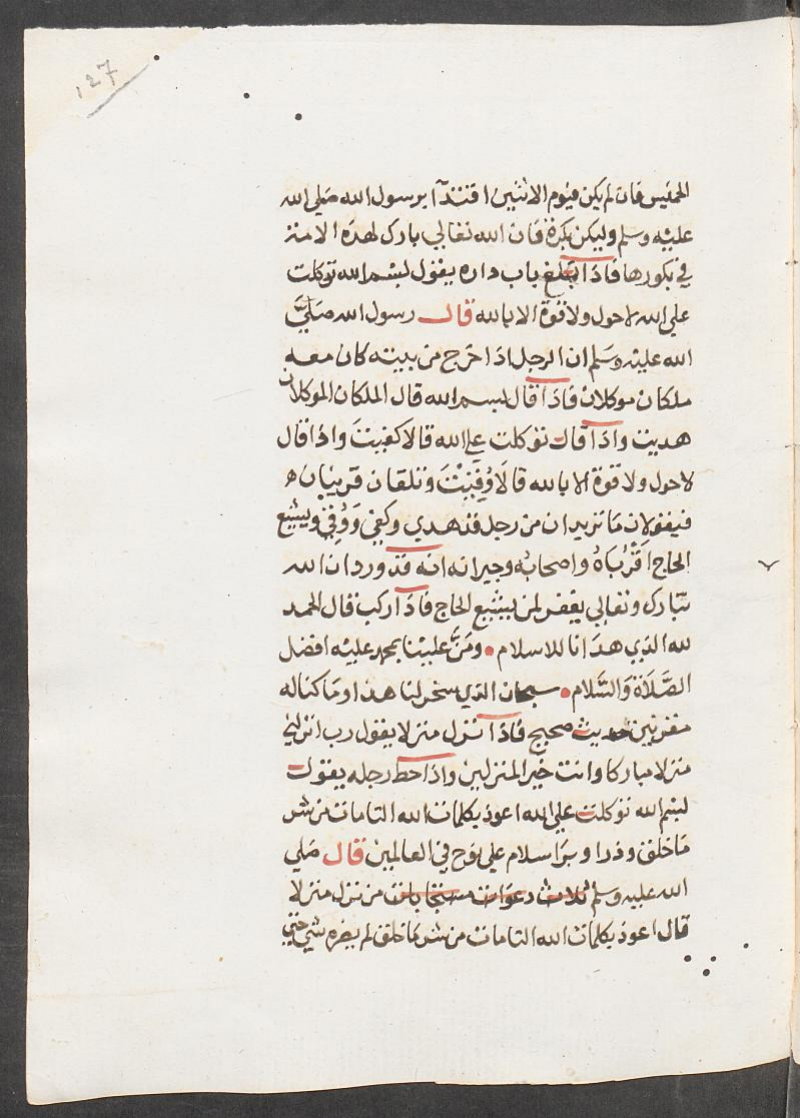 ١٢٦
الخميس فان لم يكن فيوم الاثنين اقتدآ برسول الله صلى الله
عليه وسلم وليكن بكرة فان الله تعالي بارك لهذه الامة
في بكورها فاذا بلغ باب داره يقول لبسم الله توكلت
على الله لاحول ولا قوة الا بالله قال رسول الله صَليَّ
الله عليه وسَلم ان الرجل اذا خرج من بيته كان معه
ملكان موكلان فاذا قال لبسم الله قال الملكان الموكلان
هديت واذا قال توكلت على الله قالا كفيتَ واذا قال
لاحول ولا قوة الا بالله قالا وُقِيْتَ وتلقان قرينان ه
فيقولان مَا تريدان من رجل قد هدي وكفي وَوُقي ويشيع
الحاج اقرُباهُ واصحابُه وجيرانه انه قد ورد ان الله
تبارك وتعالي يغفر لمن يشيع الحاج فاذا ركب قال الحمد
لله الذي هدَانا للاسلام ومَنَّ علينا بمحمد عليه افضل
الصَّلاَة وَالسَّلام سبحان الذي سخر لنا هذا ومَا كنا له
مقرنين حديث صحيح فاذا نزل منزلا يقول رب انزلني
منزلا مباركا وانت خير المنزلين واذا حط رحله يقول
لبسم الله توكلت على الله اعوذ بكلمات الله التامات من شر
مَاخلق وذرا وبرَا سلام علي نوح في العالمين قال صَلي
الله عليه وسلم ثلاث دعوات مستجابات من نزل منزلا
قال اعوذ بكلمات الله التامات من شر مَاخلق لم يضره شي حتي